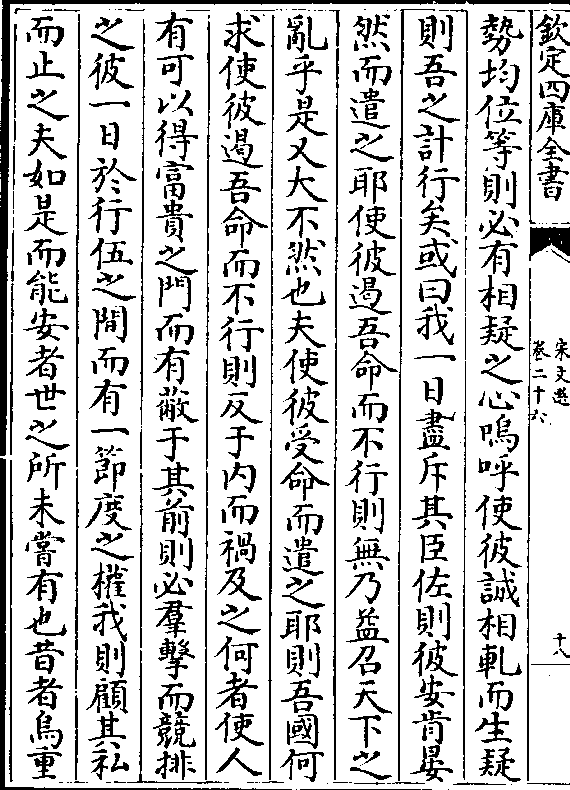 欽定四庫全書
宋文選
卷二十六
十八
勢均位等則必有相疑之心嗚呼使彼誠相軋而生疑
則吾之計行矣或曰我一日盡斥其臣佐則彼安肯晏
然而遣之耶使彼遏吾命而不行則無乃益召天下之
亂乎是又大不然也夫使彼受命而遣之耶則吾國何
求使彼遏吾命而不行則反于内而禍及之何者使人
有可以得富貴之門而有蔽于其前則必羣擊而競排
之彼一日於行伍之間而有一節度之權我則顧其私
而止之夫如是而能安者世之所未嘗有也昔者烏重